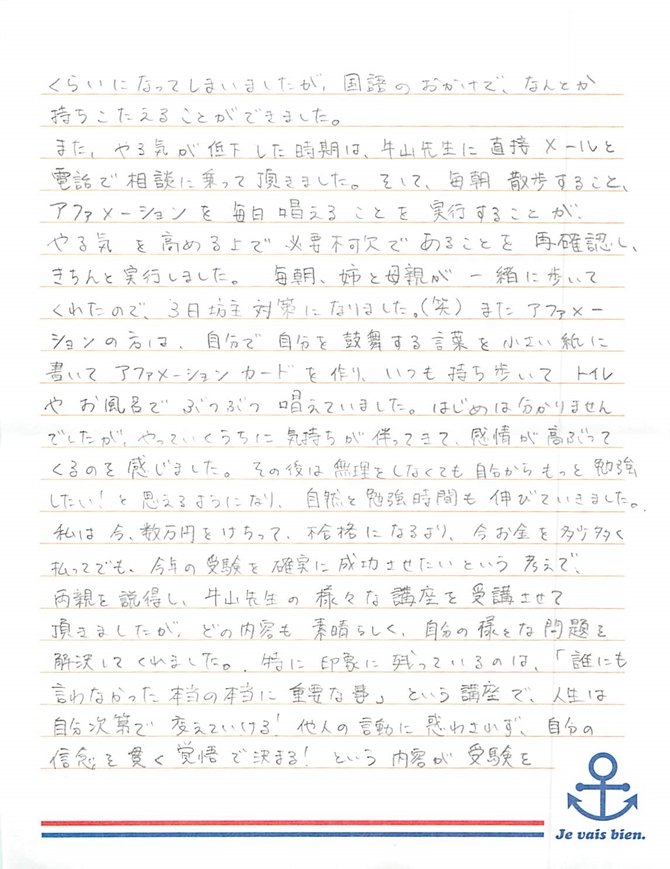 くらいになってしまいましたが、国語のおかげで、なんとか
持ちこたえることができました。
また、やる気が低下した時期は、牛山先生に直接メールと
電話で相談に乗って頂きました。そして、毎朝散歩すること、
アファメーションを毎日唱えることを実行することが、
やる気を高める上で必要不可欠であることを再確認し、
きちんと実行しました。毎朝、姉と母親が一緒に歩いて
くれたので、3日坊主対策になりました。(笑)またアファメー
ションの方は、自分で自分を鼓舞する言葉を小さい紙に
書いてアファメーションカードを作り、いつも持ち歩いてトイレ
やお風呂でぶつぶつ唱えていました。はじめは分かりません
でしたが、やっていくうちに気持ちが伴ってきて、感情が高ぶって
くるのを感じました。その後は無理をしなくても自分からもっと勉強
したい!と思えるようになり、自然と勉強時間も伸びていきました。
私は今、数万円をけちって、不合格になるより、今お金を多少多く
払ってでも、今年の受験を確実に成功させたいという考えで、
両親を説得し、牛山先生の様々な講座を受講させて
頂きましたが、どの内容も素晴らしく、自分の様々な問題を
解決してくれました。特に印象に残っているのは、「誰にも
言わなかった本当の本当に重要な事」という講座で、人生は
自分次第で変えていける!他人の言動に惑わされず、自分の
信念を貫く覚悟で決まる!という内容が受験を
Je vais bien.